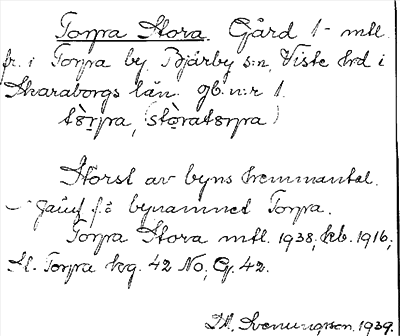 Torpa Stora. Gård 1- mtl.
fr. i Torpa by. Bjärby s:n, Viste hd i
Skaraborgs län. gb. n:r 1.
tò̤rpa, (stò̤ratɵrpa)
Störst av byns hemmantal.
Jämf. f. ö. bynamnet Torpa.
Torpa Stora mtl. 1938; kb. 1916;
St. Torpa kg. 42 No; G. 42.
Svenungson, 1939.